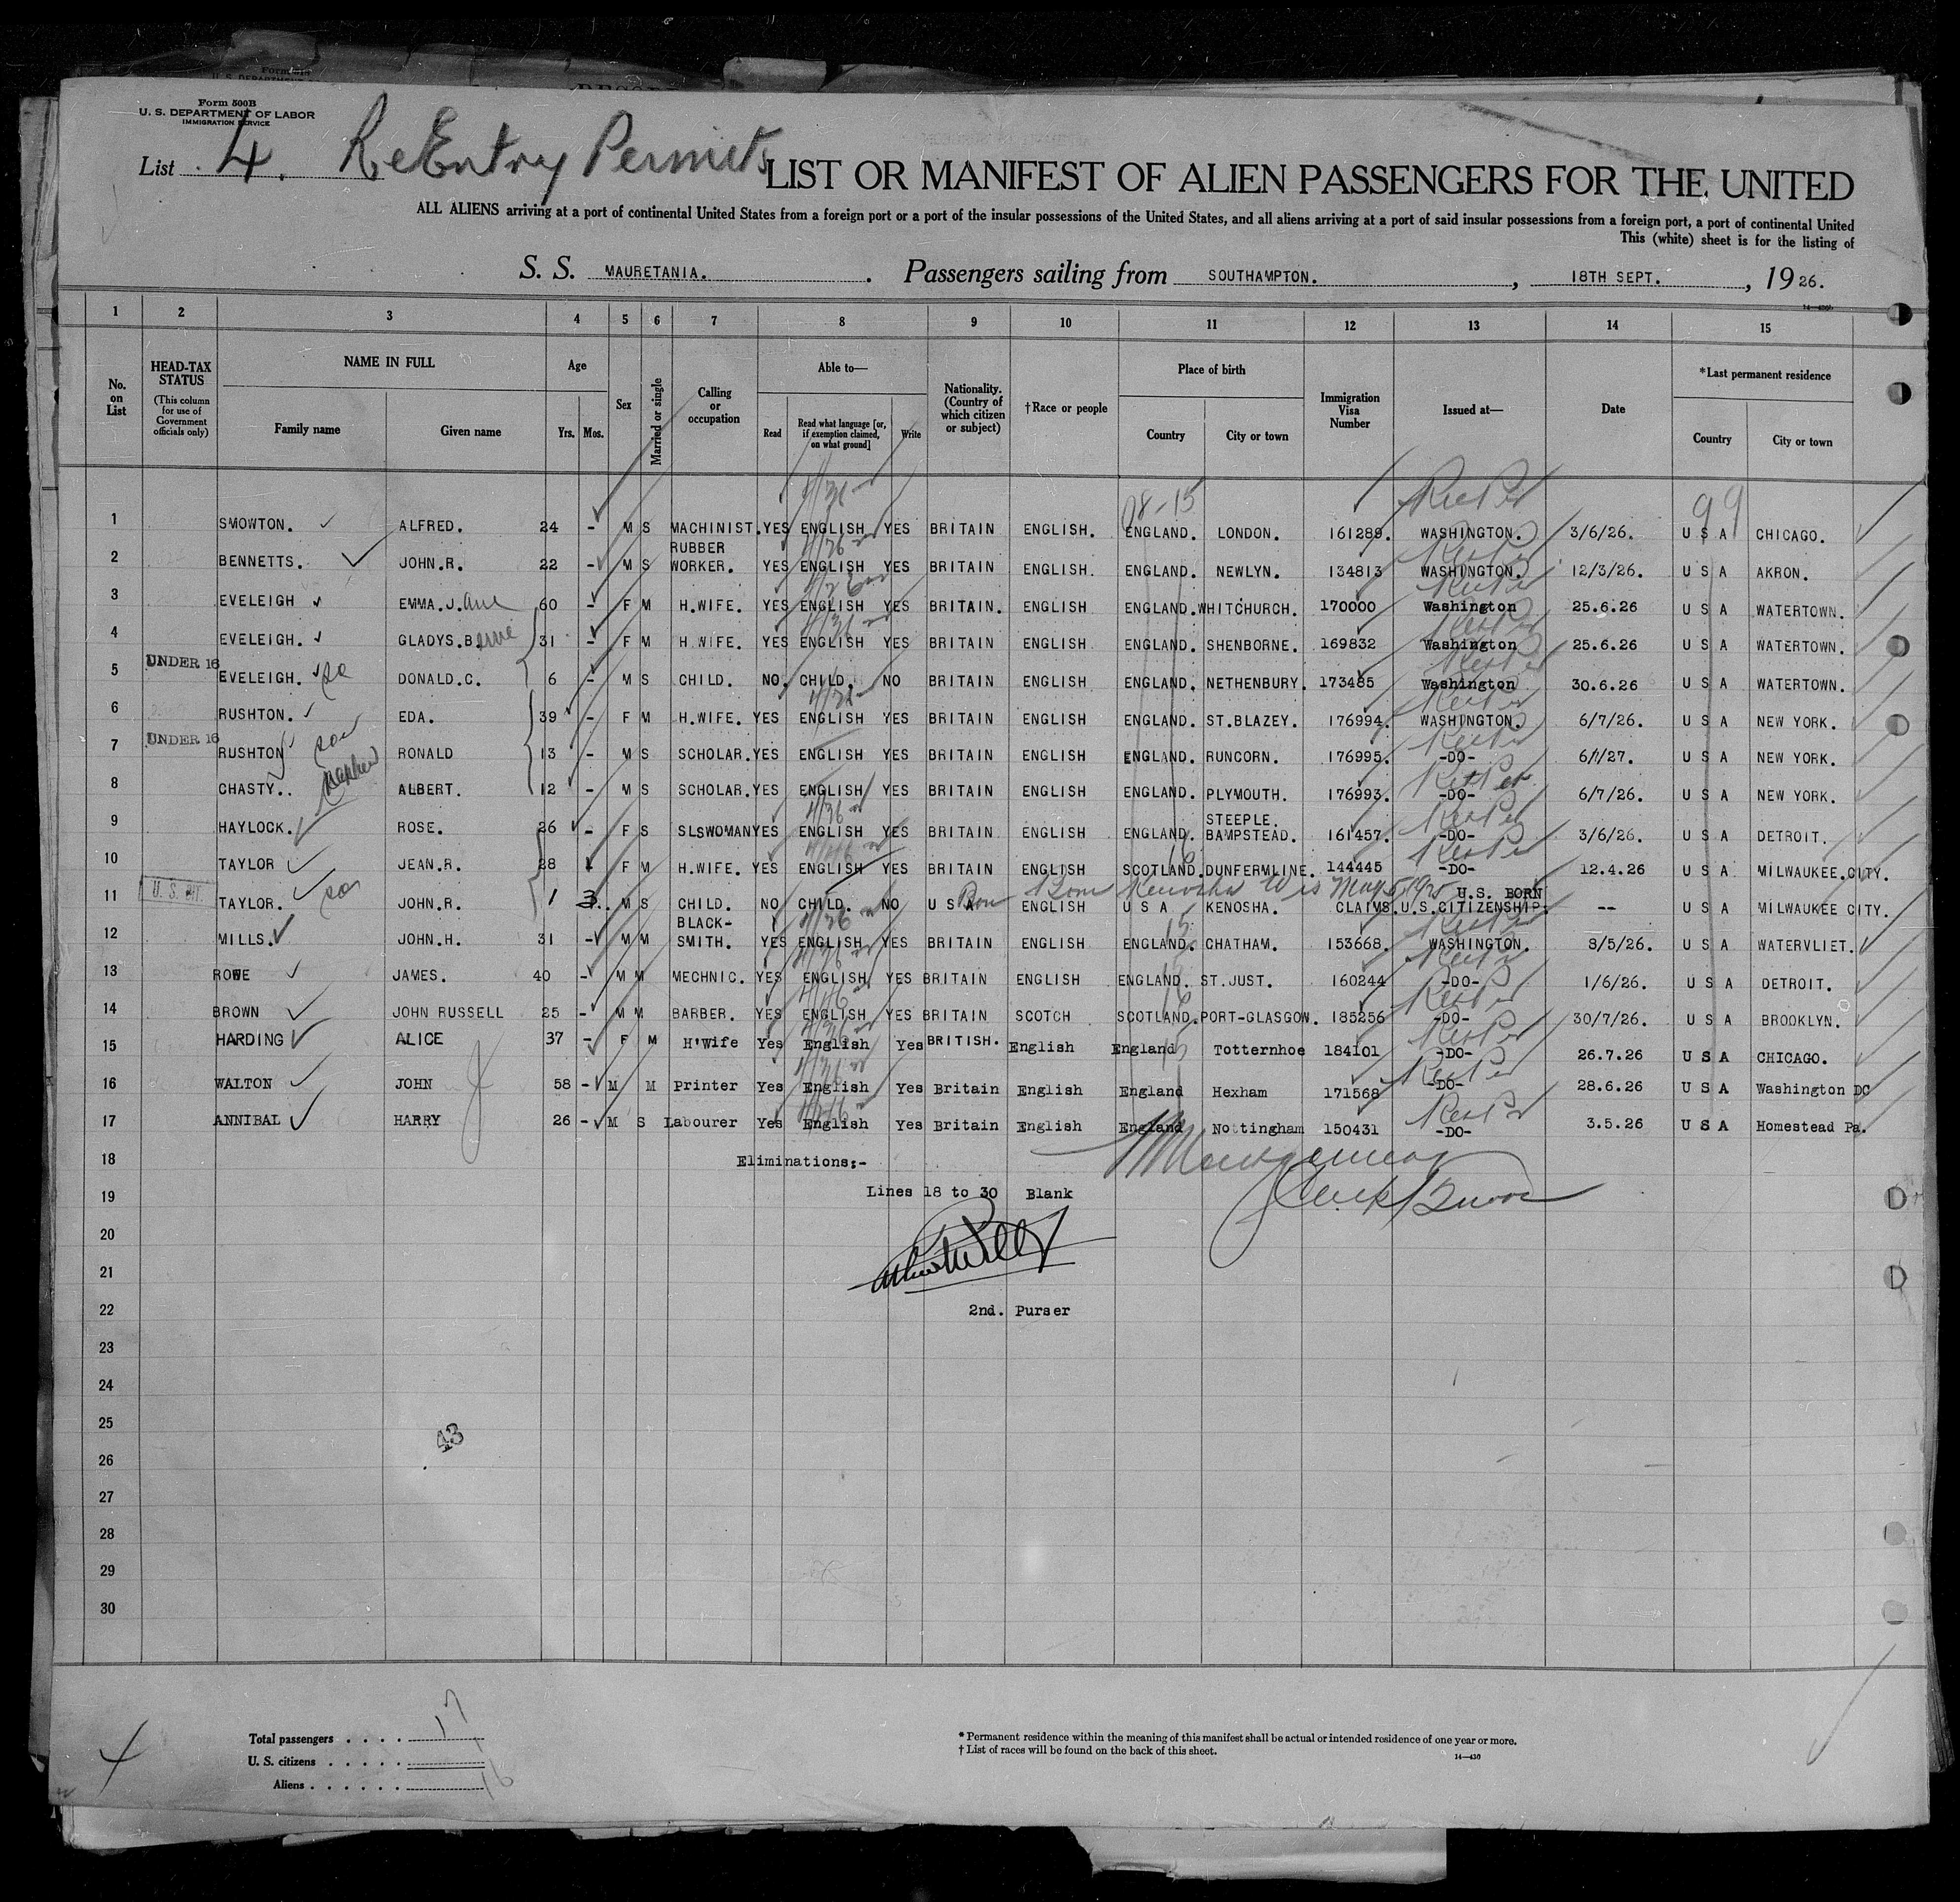 Form 500B
U. S. DEPARTMENT OF LABOR
IMMIGRATION SERVICE
List 4. ReEntry Permits
LIST OR MANIFEST OF ALIEN PASSENGERS FOR THE UNITED
ALL ALIENS arriving at a port of continental United States from a foreign port or a port of the insular possessions of the United States, and all aliens arriving at a port of said insular possessions from a foreign port, a port of continental United
This (white) sheet is for the listing of
S. S. MAURETANIA. Passengers sailing from SOUTHAMPTON. , 18TH SEPT. , 1926.
1 2 3 4 5 6 7 8 9 10 11 12 13 14 15
No. on List
HEAD-TAX STATUS (This column for use of Government officials only)
NAME IN FULL Family name Given name
Age Yrs. Mos.
Sex
Married or single
Calling or occupation
Able to— Read Read what language [or, if exemption claimed, on what ground] Write
Nationality. (Country of which citizen or subject)
†Race or people
Place of birth Country City or town
Immigration Visa Number
Issued at—
Date
*Last permanent residence Country City or town
08-15 99
1 SMOWTON. ALFRED. 24 - M S MACHINIST. YES ENGLISH YES BRITAIN ENGLISH. ENGLAND. LONDON. 161289. WASHINGTON. 3/6/26. U S A CHICAGO.
2 BENNETTS. JOHN.R. 22 - M S RUBBER WORKER. YES ENGLISH YES BRITAIN ENGLISH. ENGLAND. NEWLYN. 134813 WASHINGTON. 12/3/26. U S A AKRON.
3 EVELEIGH EMMA.J. 60 - F M H.WIFE. YES ENGLISH YES BRITAIN. ENGLISH ENGLAND. WHITCHURCH. 170000 Washington 25.6.26 U S A WATERTOWN.
4 EVELEIGH. GLADYS.B. 31 - F M H.WIFE. YES ENGLISH YES BRITAIN ENGLISH ENGLAND. SHENBORNE. 169832 Washington 25.6.26 U S A WATERTOWN.
5 UNDER 16 EVELEIGH. so DONALD.C. 6 - M S CHILD. NO. CHILD. NO BRITAIN ENGLISH ENGLAND. NETHENBURY. 173485 Washington 30.6.26 U S A WATERTOWN.
6 RUSHTON. EDA. 39 - F M H.WIFE. YES ENGLISH YES BRITAIN ENGLISH ENGLAND. ST.BLAZEY. 176994. WASHINGTON. 6/7/26. U S A NEW YORK.
7 UNDER 16 RUSHTON son RONALD 13 - M S SCHOLAR. YES ENGLISH YES BRITAIN ENGLISH ENGLAND. RUNCORN. 176995. -DO- 6/7/27. U S A NEW YORK.
8 CHASTY.. nephew ALBERT. 12 - M S SCHOLAR. YES ENGLISH YES BRITAIN ENGLISH ENGLAND. PLYMOUTH. 176993. -DO- 6/7/26. U S A NEW YORK.
9 HAYLOCK. ROSE. 26 - F S SLSWOMAN YES ENGLISH YES BRITAIN ENGLISH ENGLAND. STEEPLE. BAMPSTEAD. 161457. -DO- 3/6/26. U S A DETROIT.
10 TAYLOR JEAN.R. 28 F M H.WIFE. YES ENGLISH YES BRITAIN ENGLISH SCOTLAND. DUNFERMLINE. 144445 -DO- 12.4.26 U S A MILWAUKEE.CITY.
Born Kenosha Wis May 5 1925 U.S. BORN
11 U. S. CIT. TAYLOR. so JOHN.R. 1 3 M S CHILD. NO CHILD. NO U S A ENGLISH U S A KENOSHA. CLAIMS. U.S.CITIZENSHIP. -- U S A MILWAUKEE CITY.
12 MILLS. JOHN.H. 31 - M M BLACK-SMITH. YES ENGLISH YES BRITAIN ENGLISH ENGLAND. CHATHAM. 153668. WASHINGTON. 8/5/26. U S A WATERVLIET.
13 ROWE JAMES. 40 - M M MECHNIC. YES ENGLISH YES BRITAIN ENGLISH ENGLAND. ST.JUST. 160244 -DO- 1/6/26. U S A DETROIT.
14 BROWN JOHN RUSSELL 25 - M M BARBER. YES ENGLISH YES BRITAIN SCOTCH SCOTLAND. PORT-GLASGOW. 185256 -DO- 30/7/26. U S A BROOKLYN.
15 HARDING ALICE 37 - F M H'Wife Yes English Yes BRITISH. English England Totternhoe 184101 -DO- 26.7.26 U S A CHICAGO.
16 WALTON JOHN 58 - M M Printer Yes English Yes Britain English England Hexham 171568 -DO- 28.6.26 U S A Washington DC
17 ANNIBAL HARRY 26 - M S Labourer Yes English Yes Britain English England Nottingham 150431 -DO- 3.5.26 U S A Homestead Pa.
18 Eliminations:-
19 Lines 18 to 30 Blank
20
21
22 2nd. Purser
23
24
25
43
26
27
28
29
30
Total passengers . . . . 17
U. S. citizens . . . . . 1
Aliens . . . . . . 16
* Permanent residence within the meaning of this manifest shall be actual or intended residence of one year or more.
† List of races will be found on the back of this sheet.
14—430